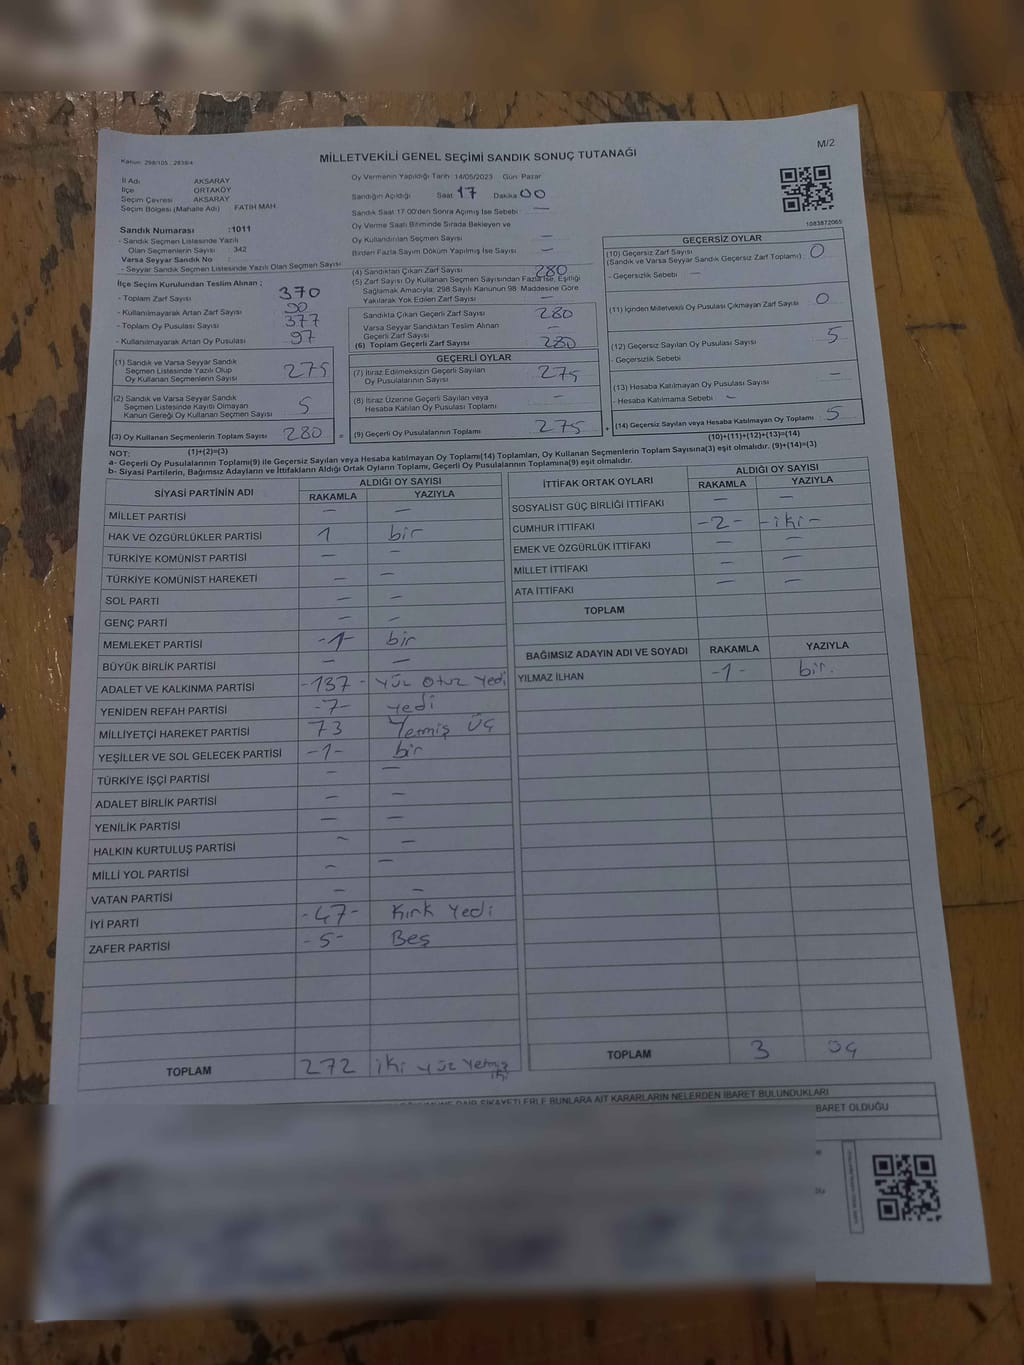 M/2
Kanun: 298/105 : 2839/4
MİLLETVEKİLİ GENEL SEÇİMİ SANDIK SONUÇ TUTANAĞI
İl Adı AKSARAY
İlçe ORTAKÖY
Seçim Çevresi AKSARAY
Seçim Bölgesi (Mahalle Adı) FATİH MAH.
Sandık Numarası :1011
- Sandık Seçmen Listesinde Yazılı
Olan Seçmenlerin Sayısı : 342
Varsa Seyyar Sandık No :
- Seyyar Sandık Seçmen Listesinde Yazılı Olan Seçmen Sayısı
İlçe Seçim Kurulundan Teslim Alınan ;
- Toplam Zarf Sayısı : 370
- Kullanılmayarak Artan Zarf Sayısı : 90
- Toplam Oy Pusulası Sayısı : 377
- Kullanılmayarak Artan Oy Pusulası : 97
(1) Sandık ve Varsa Seyyar Sandık
Seçmen Listesinde Yazılı Olup
Oy Kullanan Seçmenlerin Sayısı : 275
(2) Sandık ve Varsa Seyyar Sandık
Seçmen Listesinde Kayıtlı Olmayan
Kanun Gereği Oy Kullanan Seçmen Sayısı : 5
(3) Oy Kullanan Seçmenlerin Toplam Sayısı : 280 =
Oy Vermenin Yapıldığı Tarih :14/05/2023 Gün: Pazar
Sandığın Açıldığı Saat 17 Dakika 00
Sandık Saat 17:00'den Sonra Açılmış İse Sebebi : —
Oy Verme Saati Bitiminde Sırada Bekleyen ve
Oy Kullandırılan Seçmen Sayısı : —
Birden Fazla Sayım Döküm Yapılmış İse Sayısı : —
(4) Sandıktan Çıkan Zarf Sayısı : 280
(5) Zarf Sayısı Oy Kullanan Seçmen Sayısından Fazla İse, Eşitliği
Sağlamak Amacıyla; 298 Sayılı Kanunun 98. Maddesine Göre
Yakılarak Yok Edilen Zarf Sayısı : —
Sandıkta Çıkan Geçerli Zarf Sayısı : 280
Varsa Seyyar Sandıktan Teslim Alınan
Geçerli Zarf Sayısı : —
(6) Toplam Geçerli Zarf Sayısı : 280
GEÇERLİ OYLAR
(7) İtiraz Edilmeksizin Geçerli Sayılan
Oy Pusulalarının Sayısı : 275
(8) İtiraz Üzerine Geçerli Sayılan veya
Hesaba Katılan Oy Pusulası Toplamı : —
(9) Geçerli Oy Pusulalarının Toplamı : 275 +
1083872065
GEÇERSİZ OYLAR
(10) Geçersiz Zarf Sayısı
(Sandık ve Varsa Seyyar Sandık Geçersiz Zarf Toplamı) : 0
- Geçersizlik Sebebi : —
(11) İçinden Milletvekili Oy Pusulası Çıkmayan Zarf Sayısı : 0
(12) Geçersiz Sayılan Oy Pusulası Sayısı : 5
- Geçersizlik Sebebi
(13) Hesaba Katılmayan Oy Pusulası Sayısı : —
- Hesaba Katılmama Sebebi : —
(14) Geçersiz Sayılan veya Hesaba Katılmayan Oy Toplamı : 5
NOT: (1)+(2)=(3) (10)+(11)+(12)+(13)=(14)
a- Geçerli Oy Pusulalarının Toplamı(9) ile Geçersiz Sayılan veya Hesaba katılmayan Oy Toplamı(14) Toplamları, Oy Kullanan Seçmenlerin Toplam Sayısına(3) eşit olmalıdır. (9)+(14)=(3)
b- Siyasi Partilerin, Bağımsız Adayların ve İttifakların Aldığı Ortak Oyların Toplamı, Geçerli Oy Pusulalarının Toplamına(9) eşit olmalıdır.
SİYASİ PARTİNİN ADI ALDIĞI OY SAYISI
RAKAMLA YAZIYLA
MİLLET PARTİSİ — —
HAK VE ÖZGÜRLÜKLER PARTİSİ 1 bir
TÜRKİYE KOMÜNİST PARTİSİ — —
TÜRKİYE KOMÜNİST HAREKETİ — —
SOL PARTİ — —
GENÇ PARTİ — —
MEMLEKET PARTİSİ -1- bir
BÜYÜK BİRLİK PARTİSİ — —
ADALET VE KALKINMA PARTİSİ -137- yüz otuz yedi
YENİDEN REFAH PARTİSİ -7- yedi
MİLLİYETÇİ HAREKET PARTİSİ 73 Yetmiş üç
YEŞİLLER VE SOL GELECEK PARTİSİ -1- bir
TÜRKİYE İŞÇİ PARTİSİ — —
ADALET BİRLİK PARTİSİ — —
YENİLİK PARTİSİ — —
HALKIN KURTULUŞ PARTİSİ — —
MİLLİ YOL PARTİSİ — —
VATAN PARTİSİ — —
İYİ PARTİ -47- Kırk Yedi
ZAFER PARTİSİ -5- Beş
TOPLAM 272 iki yüz yetmiş iki
İTTİFAK ORTAK OYLARI ALDIĞI OY SAYISI
RAKAMLA YAZIYLA
SOSYALİST GÜÇ BİRLİĞİ İTTİFAKI — —
CUMHUR İTTİFAKI -2- -iki-
EMEK VE ÖZGÜRLÜK İTTİFAKI — —
MİLLET İTTİFAKI — —
ATA İTTİFAKI — —
TOPLAM
BAĞIMSIZ ADAYIN ADI VE SOYADI RAKAMLA YAZIYLA
YILMAZ İLHAN -1- bir
TOPLAM 3 üç
ŞİKAYETLERLE BUNLARA AİT KARARLARIN NELERDEN İBARET BULUNDUKLARI
İBARET OLDUĞU